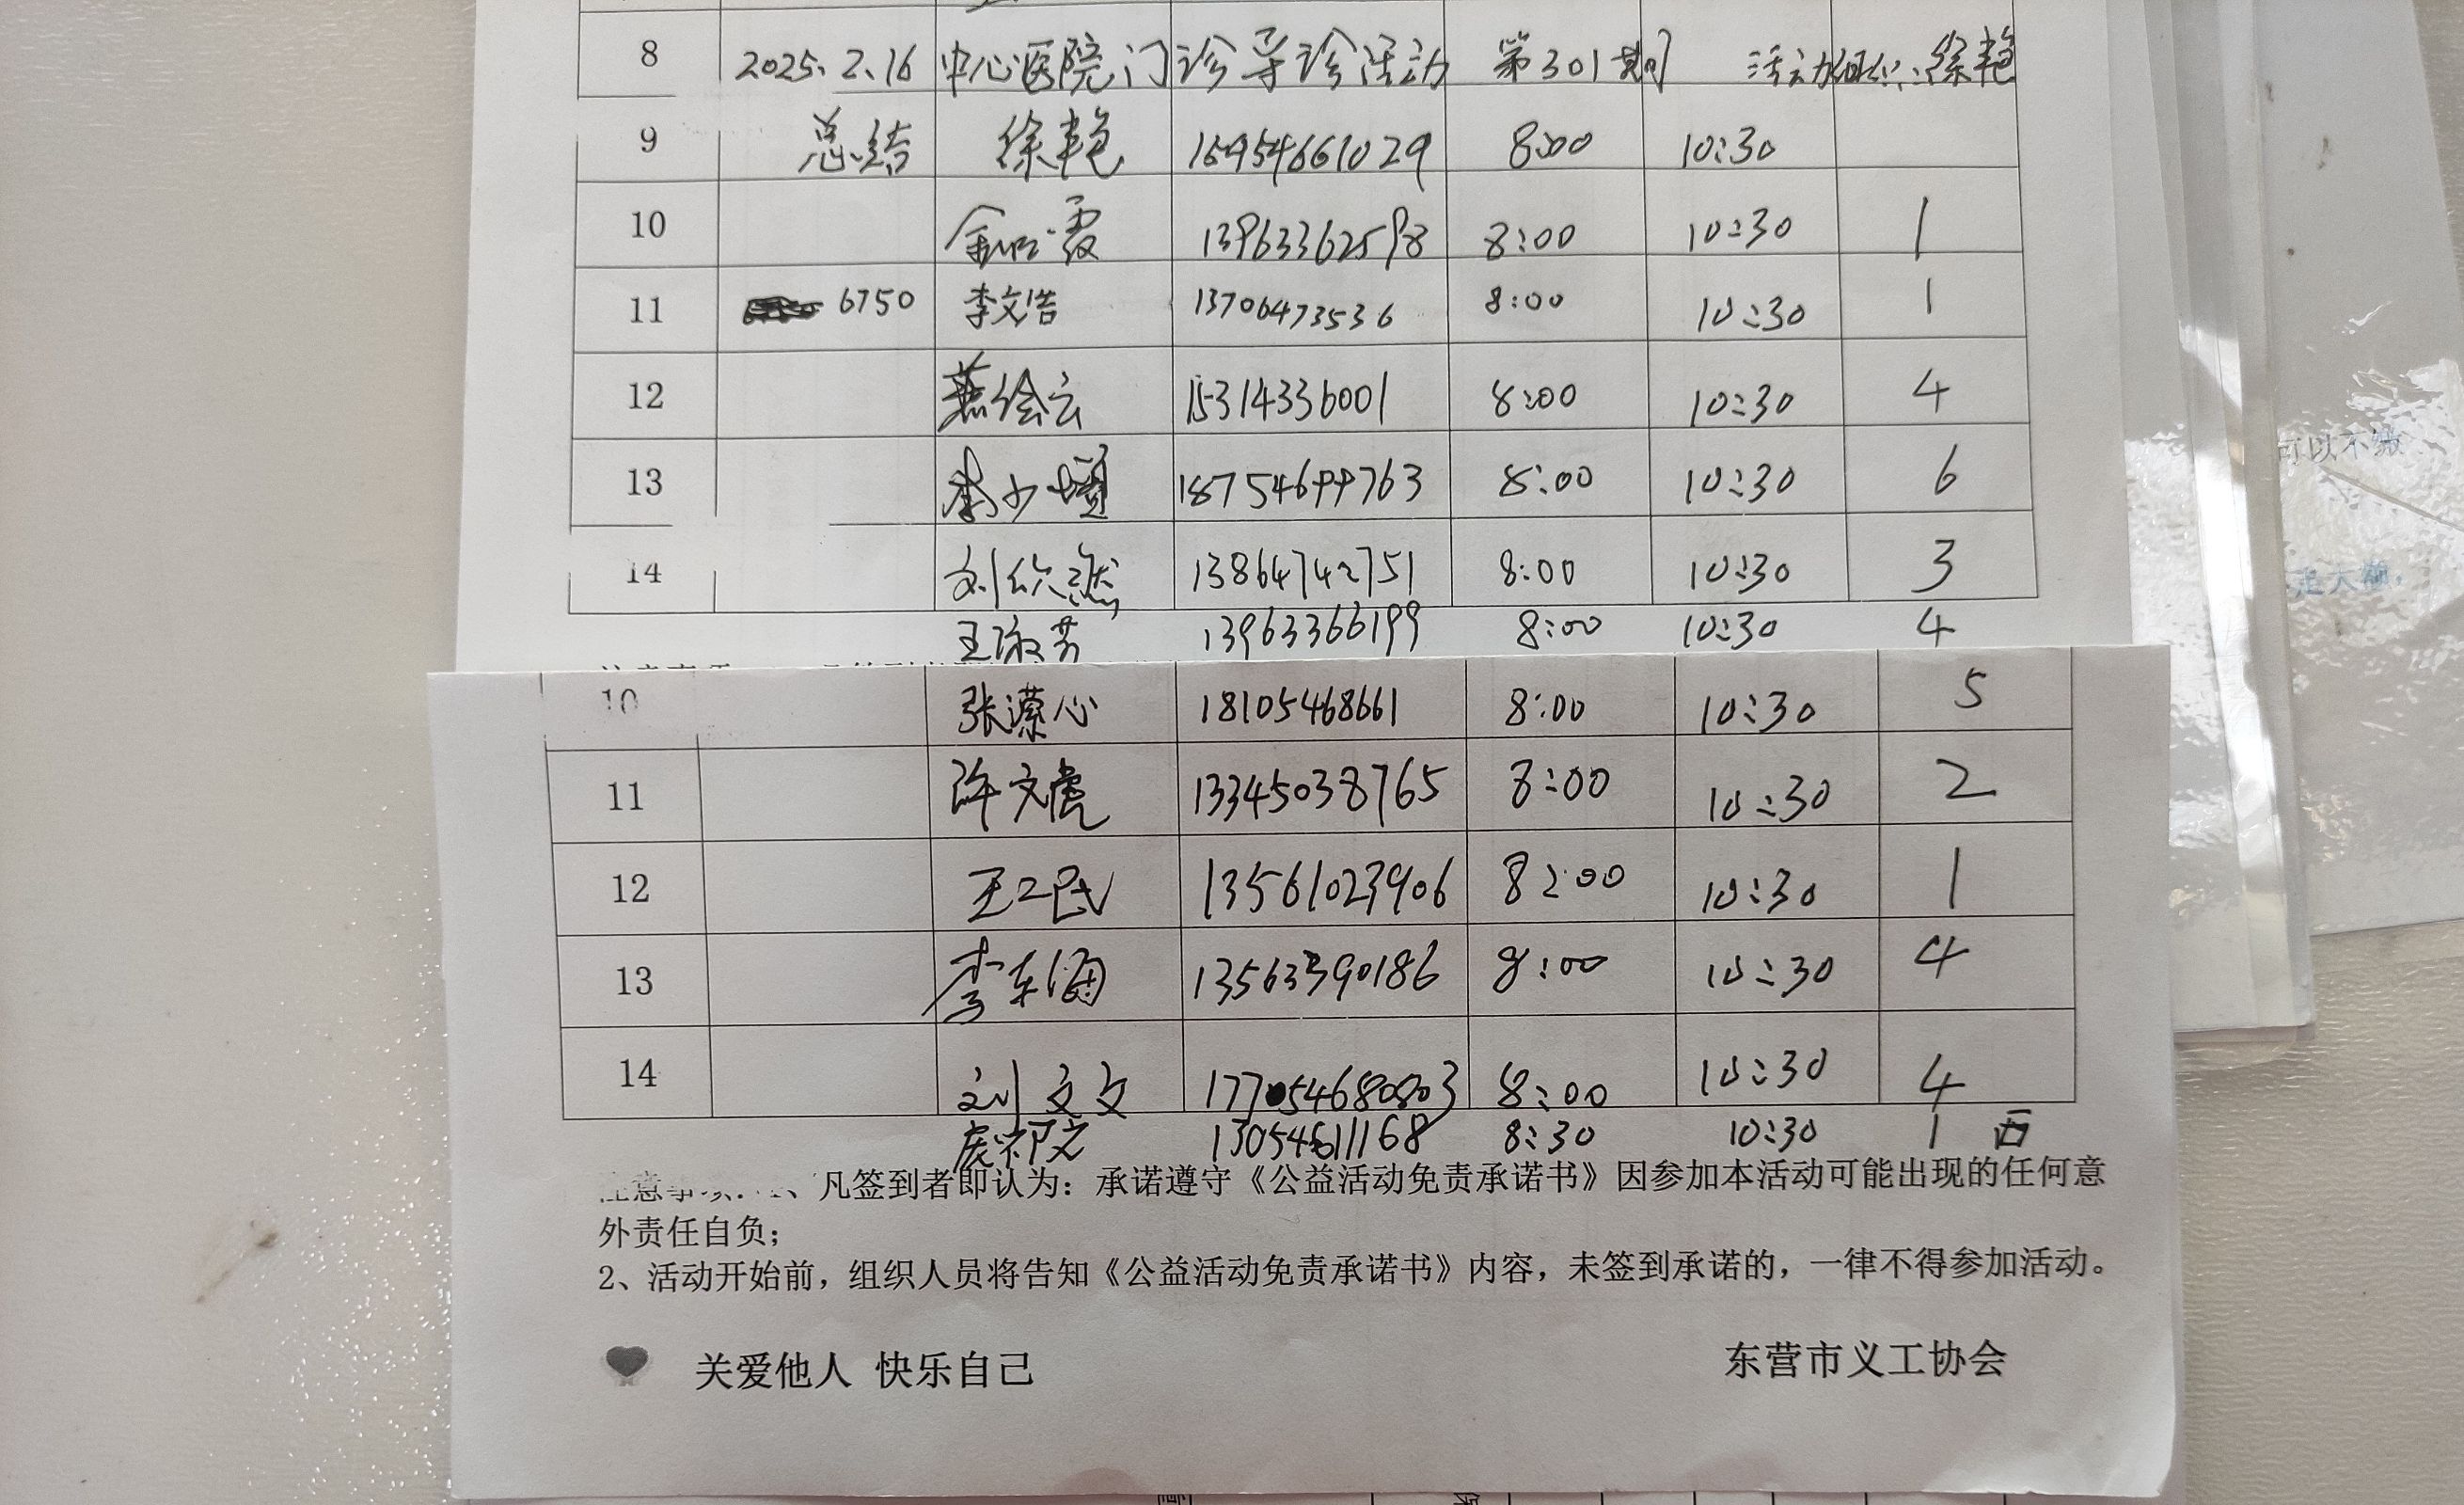 8 2025.2.16 中心医院门诊导诊活动 第301期 活动组织:徐艳
9 总结 徐艳 15954661029 8:00 10:30
10 霞 13963362598 8:00 10:30 1
11 6750 李文浩 13706473536 8:00 10:30 1
12 燕绘云 15314336001 8:00 10:30 4
13 李少 18754699763 8:00 10:30 6
14 刘欣燃 13864742751 8:00 10:30 3
王淑芳 13963366199 8:00 10:30 4
10 张潆心 18105468661 8:00 10:30 5
11 许文虎 13345038765 8:00 10:30 2
12 王工民 13561023906 8:00 10:30 1
13 李东海 13563390186 8:00 10:30 4
14 刘文文 17705468003 8:00 10:30 4
庞祁文 13054611168 8:30 10:30 1 西
注意事项:1、凡签到者即认为:承诺遵守《公益活动免责承诺书》因参加本活动可能出现的任何意
外责任自负;
2、活动开始前,组织人员将告知《公益活动免责承诺书》内容,未签到承诺的,一律不得参加活动。
关爱他人 快乐自己
东营市义工协会
可以不缴